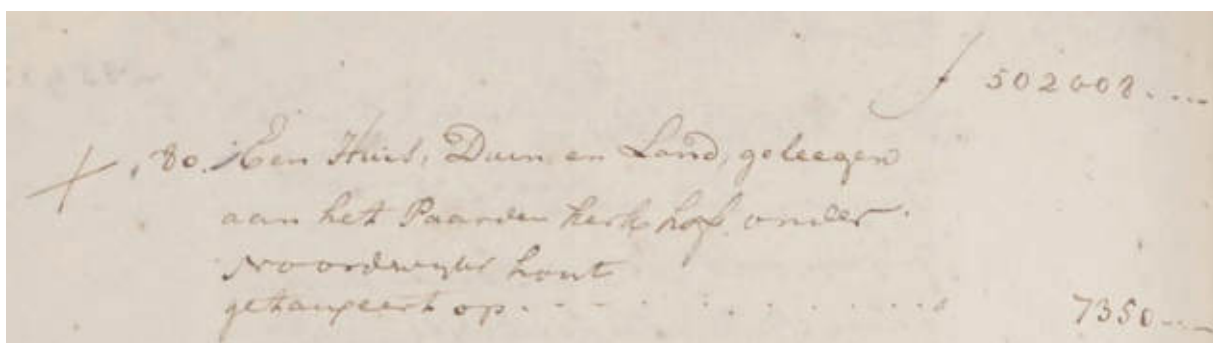 ƒ 502008....
80. Een Huis, Duin, en Land, geleegen
aan het Paarden kerk hof, onder
Noordwyker hout
getaxeert op
7350...